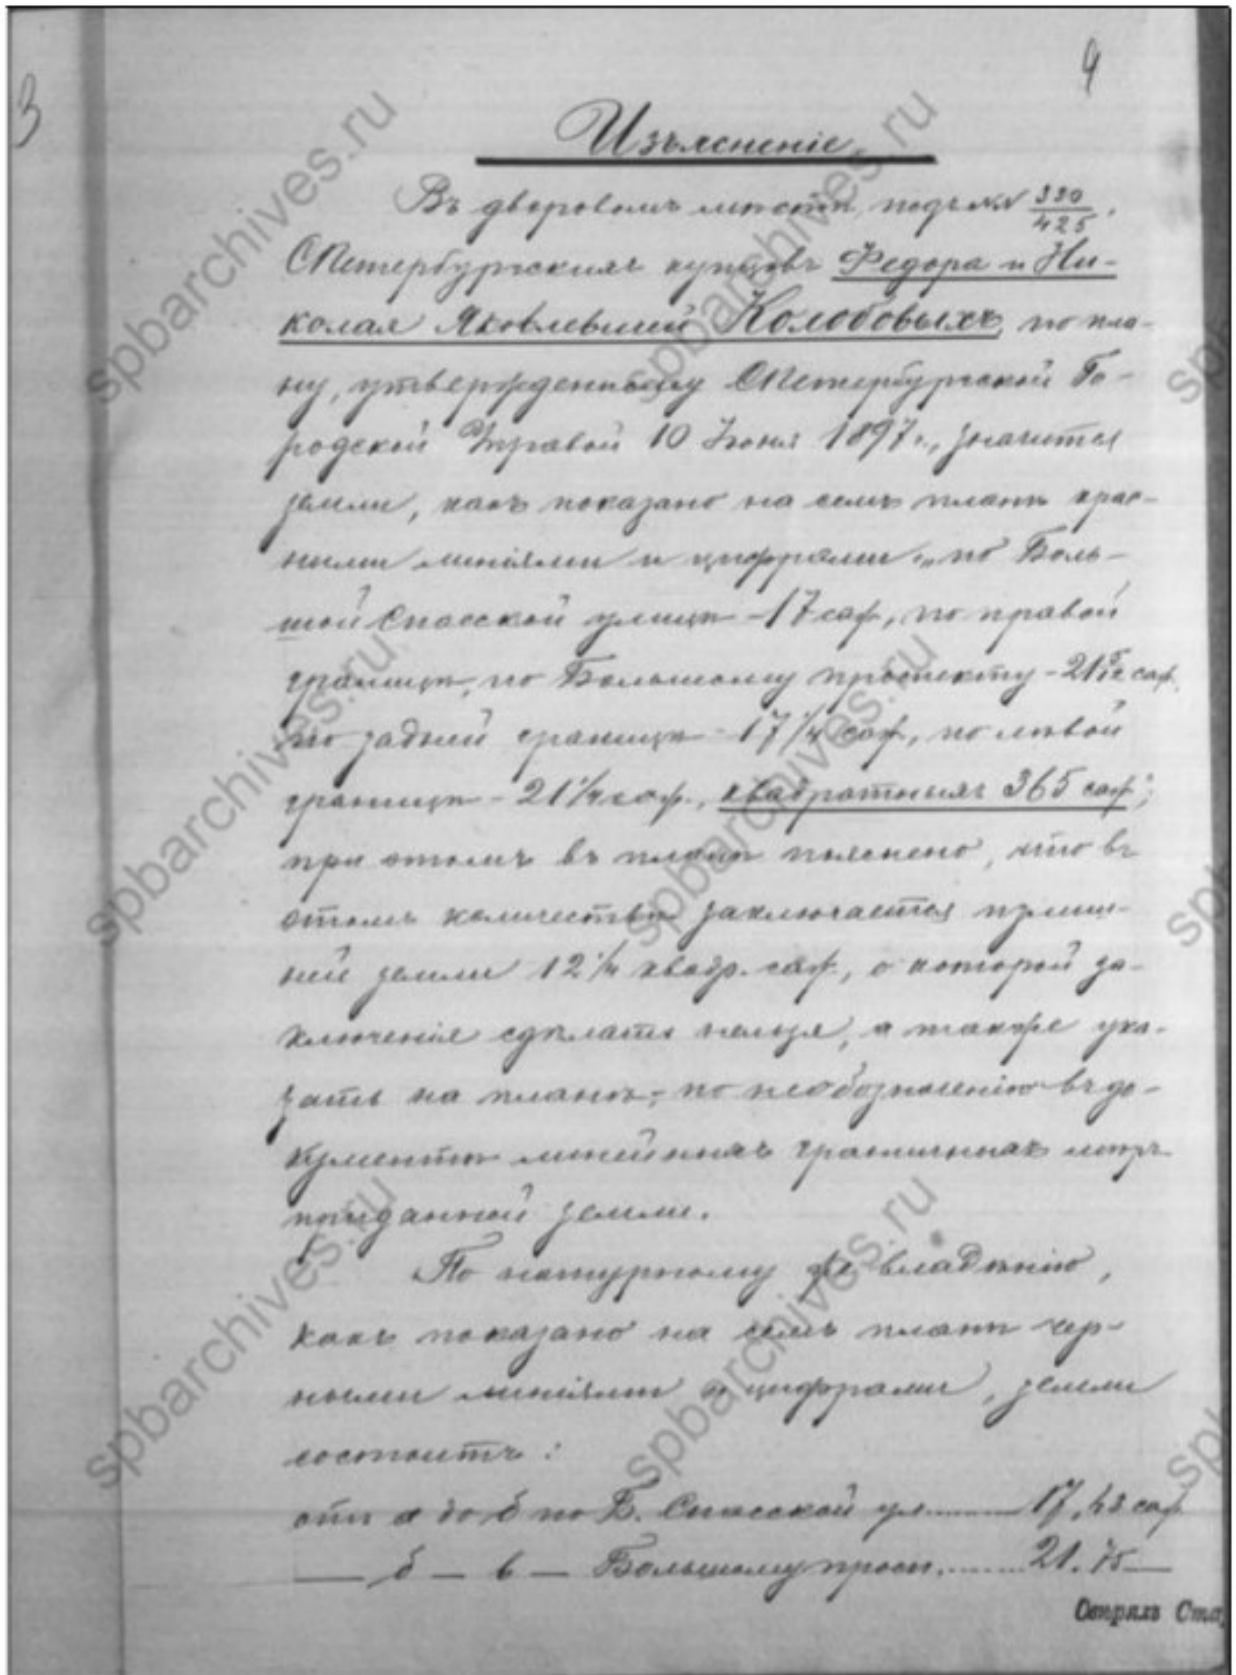 3
4
Изъясненіе.
Въ дворовомъ мѣстѣ, подъ №№ 330/425,
СПетербургскихъ купцовъ Федора и Ни-
колая Яковлевичей Колобовыхъ, по пла-
ну, утвержденному СПетербургской Го-
родской Управой 10 Іюня 1897 г., значится
земли, какъ показано на семъ планѣ крас-
ными линіями и цифрами, "по Боль-
шой Спасской улицѣ - 17 саж., по правой
границѣ, по Большому проспекту - 21 саж.
по задней границѣ - 17 1/4 саж., по лѣвой
границѣ - 21 1/4 саж., квадратныхъ 365 саж.";
при этомъ въ планѣ пояснено, что въ
этомъ количествѣ заключается излиш-
ней земли 12 1/4 квадр. саж., о которой за-
ключенія сдѣлать нельзя, а также ука-
зать на планѣ, по необозначенію въ до-
кументѣ линейныхъ граничныхъ мѣръ
приданной земли.
По натурному же владѣнію,
какъ показано на семъ планѣ чер-
ными линіями и цифрами, земли
состоитъ:
отъ а до б по Б. Спасской ул. ........ 17,43 саж.
— б — в — Большому просп. ........ 21.75 —
spbarchives.ru
spbarchives.ru
spbarchives.ru
spbarchives.ru
spbarchives.ru
spbarchives.ru